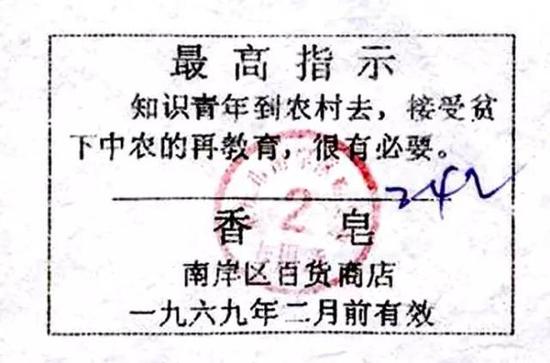 最高指示
知识青年到农村去，接受贫
下中农的再教育，很有必要。
242
2
香皂
南岸区百货商店
一九六九年二月前有效